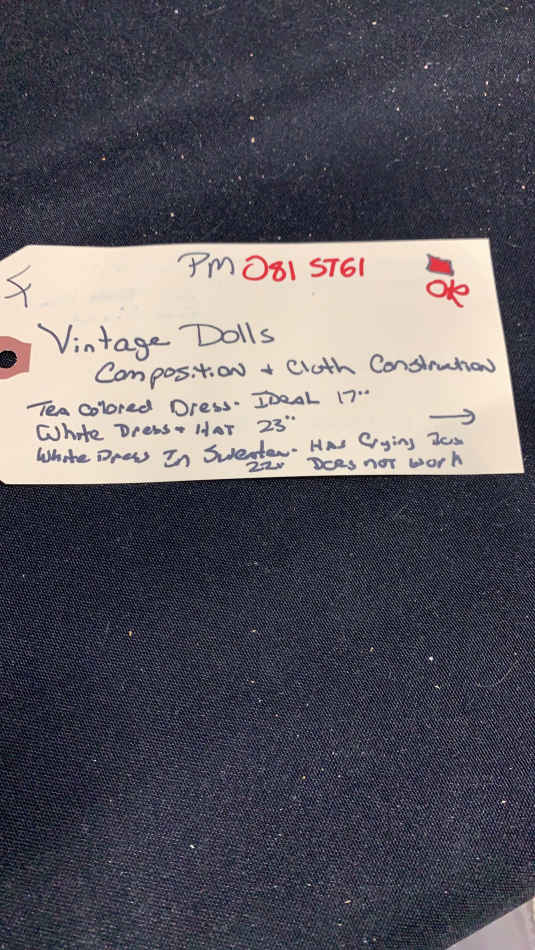 PM 081 ST61
OK
Vintage Dolls
Composition + Cloth Construction
Tea Colored Dress - IDEAL 17"
White Dress + HAT 23"
White Dress In Sweater - Has Crying Box
22" Does not work